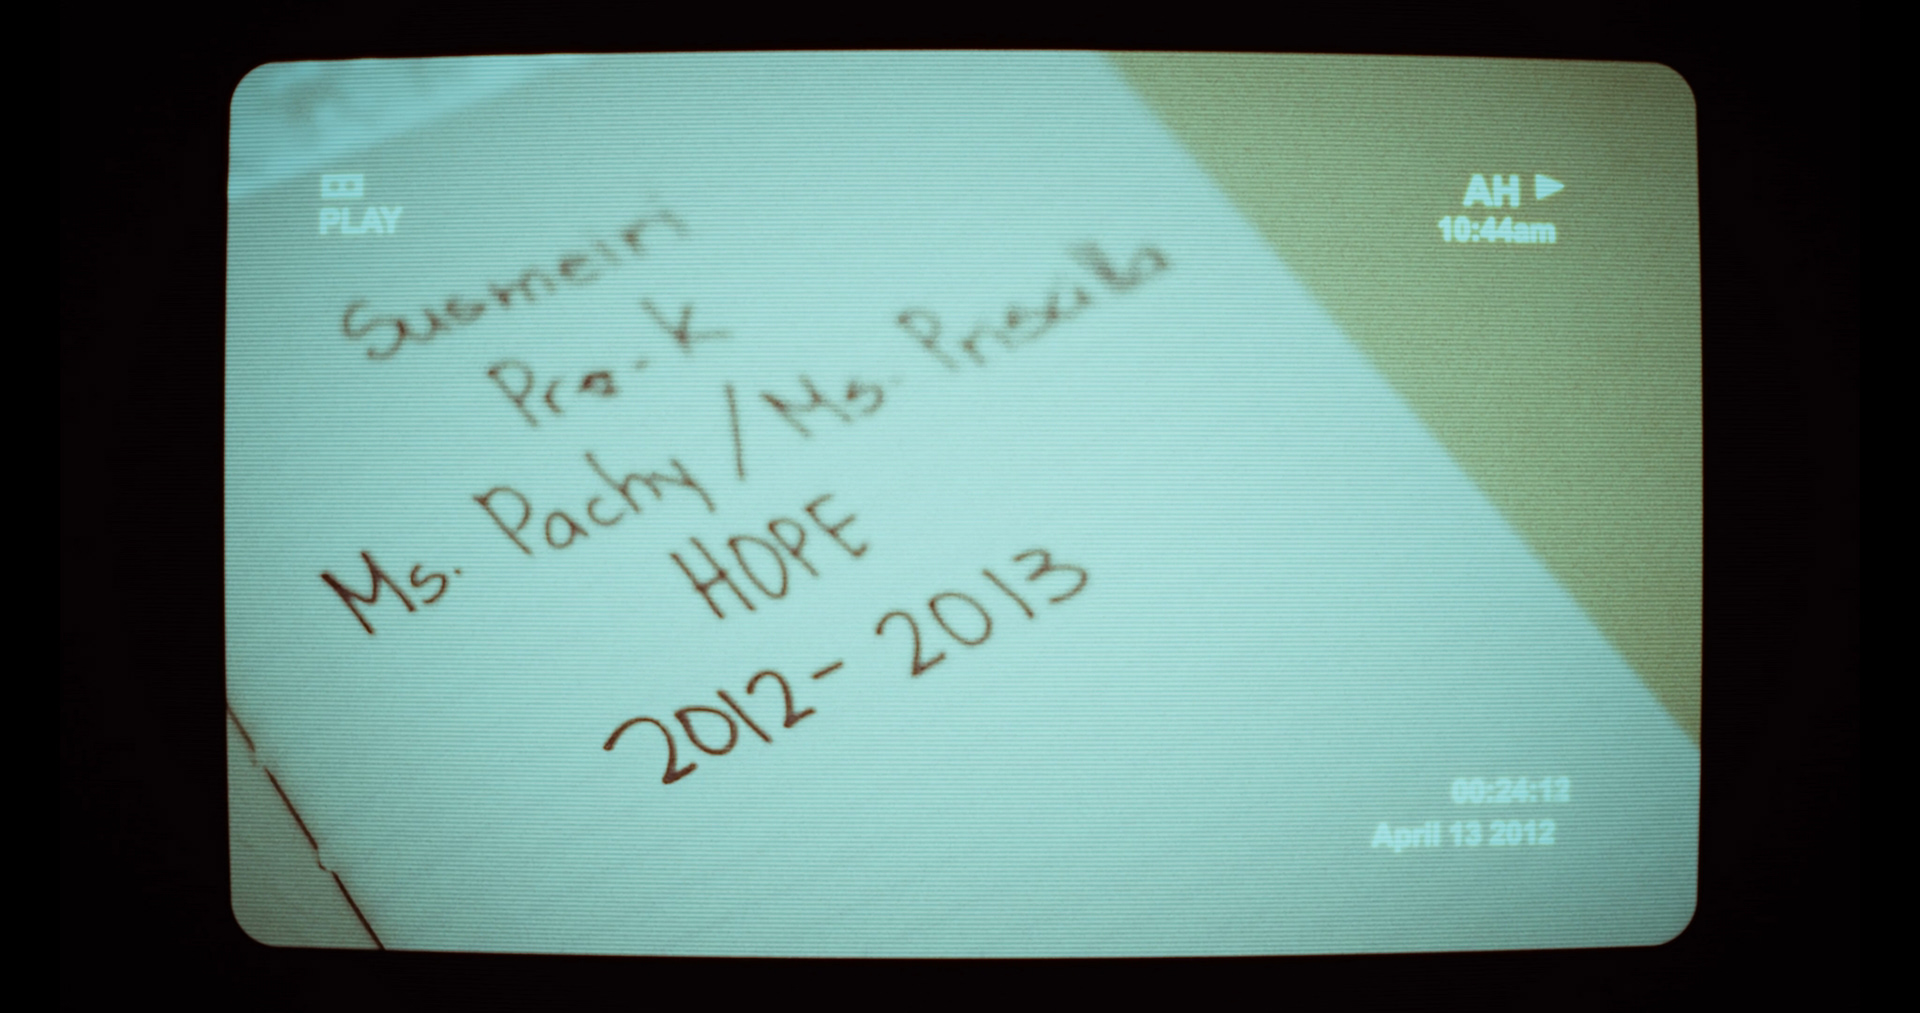 PLAY
AH
10:44am
Susmeiri
Pre-K
Ms. Pachy / Ms. Priscilla
HOPE
2012-2013
00:24:12
April 13 2012